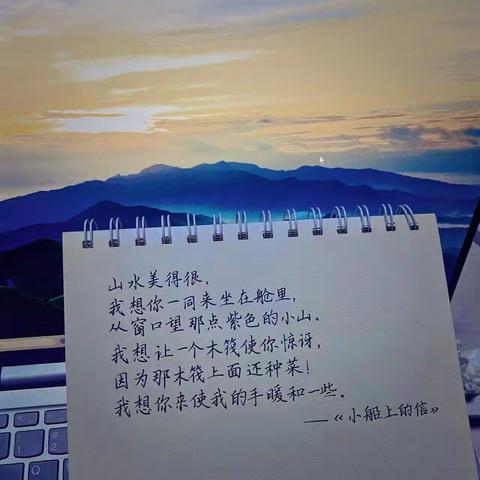 山水美得很，
我想你一同来坐在舱里，
从窗口望那点紫色的小山。
我想让一个木筏使你惊讶，
因为那木筏上面还种菜！
我想你来使我的手暖和一些。
——《小船上的信》